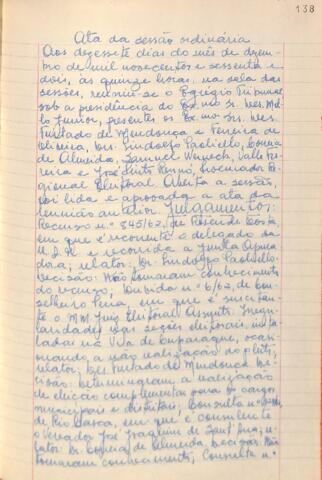 138
Ata da sessão ordinária
Aos dezessete dias do mês de dezem-
bro de mil novecentos e sessenta e
dois, às quinze horas, na sala das
sessões, reuniu-se o Egrégio Tribunal
sob a presidência do Exmo Sr. Des. Mel-
lo Junior, presentes os Exmos. Srs. Des.
Furtado de Mendonça e Ferreira de
Oliveira, Drs. Lindolfo Paoliello, Correia
de Almeida, Samuel Werneck, Valle Fer-
reira e José Procurador Re-
gional Eleitoral. Aberta a sessão,
foi lida e aprovada a ata da
reunião anterior. Julgamentos:
Recurso n.º 345/62, de Resende Costa
em que é recorrente o delegado da
U.D.N. e recorrida a Junta Apura-
dora; relator: Dr. Lindolfo Paoliello.
Decisão: Não tomaram conhecimento
do recurso; Dúvida n.º 6/62, de Con-
selheiro Pena, em que é suscitan-
te o MM. Juiz Eleitoral. Assunto: Irregu-
laridades nas seções eleitorais, insta-
ladas na Vila de Cuparaque, ocasi-
onando a não realização do pleito;
relator: Des. Furtado de Mendonça. De-
cisão: Determinaram a realização
de eleição complementar para os cargos
municipais e distritais; Consulta n.º
de Rio Casca, em que é consulente
o Vereador José Joaquim de Sant'Ana; re-
lator: Dr. Correia de Almeida. Decisão: Não
tomaram conhecimento; Consulta n.º